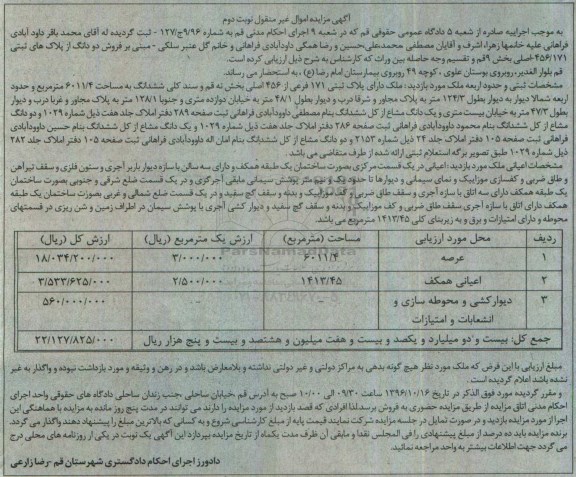 آگهی مزایده اموال غیر منقول نوبت دوم
به موجب اجراییه صادره از شعبه ۵ دادگاه عمومی حقوقی قم که در شعبه ۹ اجرای احکام مدنی قم به شماره ۹/۹۶ج/۱۲۷ - ثبت گردیده له آقای محمد باقر داود آبادی
فراهانی علیه خانمها زهرا، اشرف و آقایان مصطفی محمدعلی حسین و رضا همگی داودآبادی فراهانی و خانم گل عنبر سلکی - مبنی بر فروش دو دانگ از پلاک های ثبتی
۴۵۶/۱۷۱-اصلی بخش ۹ قم و تقسیم وجه حاصله بین وراث که کارشناس به شرح ذیل ارزیابی کرده است.
قم بلوار الغدیر، روبروی بوستان علوی، کوچه ۴۹ روبروی بیمارستان امام رضا (ع)، به استحضار می رساند.
مشخصات ثبتی و حدود اربعه ملک مورد بازدید: ملک دارای پلاک ثبتی ۱۷۱ فرعی از ۴۵۶ اصلی بخش نه قم و سند کلی ششدانگ به مساحت ۶۰۱۱/۴ مترمربع و حدود
اربعه شمالا دیوار به دیوار بطول ۱۲۴/۳ متر به پلاک مجاور و شرقا درب و دیوار بطول ۴۸/۱ متر به خیابان دوازده متری و جنوبا ۱۲۸/۱ متر به پلاک مجاور و غربا درب و دیوار
بطول ۴۷/۳ متر به خیابان بیست متری و یک دانگ مشاع از کل ششدانگ بنام مصطفی داودآبادی فراهانی ثبت صفحه ۲۸۹ دفتر املاک جلد هفت ذیل شماره ۱۰۲۹ و دو دانگ
مشاع از کل ششدانگ بنام محمود داودآبادی فراهانی ثبت صفحه ۲۸۶ دفتر املاک جلد هفت ذیل شماره ۱۰۲۹ و یک دانگ مشاع از کل ششدانگ بنام حسین داودآبادی
فراهانی ثبت صفحه ۱۰۵ دفتر املاک جلد ۲۴ ذیل شماره ۲۱۵۳ و دو دانگ مشاع از کل ششدانگ بنام امان اله داودآبادی فراهانی ثبت صفحه ۱۰۵ دفتر املاک جلد ۲۸۲
ذیل شماره ۱۰۲۹ طبق تصویر برگه استعلام ثبتی ارائه شده از طرف متقاضی می باشد.
مشخصات اعیانی ملک مورد بازدید: اعیانی در یک قسمت مرکزی بصورت ساختمان یک طبقه همکف و دارای سه سالن با سازه دیوار باربر آجری و ستون فلزی و سقف تیرآهن
و طاق ضربی و کفسازی موزاییک و نمای سیمانی و دیوارها تا حدود یک و نیم متر پوشش سیمانی مابقی آجرگری و در یک قسمت ضلع شرقی و جنوبی بصورت ساختمان
یک طبقه همکف دارای سه اتاق با سازه آجری و سقف طاق ضربی و کف موزاییک و بدنه و سقف گچ سفید و در یک قسمت ضلع شمالی و غربی بصورت ساختمان یک طبقه
همکف دارای اتاق با سازه آجری سقف طاق ضربی و کف موزاییک و بدنه و سقف گچ سفید و دیوار کشی آجری با پوشش سیمان در اطراف زمین و شن ریزی در قسمتهای
محوطه و دارای امتیازات و برق و به زیربنای کلی ۱۴۱۳/۴۵ مترمربع می باشد.
ردیف محل مورد ارزیابی مساحت (مترمربع) ارزش یک مترمربع (ریال) ارزش کل (ریال)
۱ عرصه ۶۰۱۱/۴ ۳/۰۰۰/۰۰۰ ۱۸/۰۳۴/۲۰۰/۰۰۰
۲ اعیانی همکف ۱۴۱۳/۴۵ ۲/۵۰۰/۰۰۰ ۳/۵۳۳/۶۲۵/۰۰۰
۳ دیوارکشی و محوطه سازی و انشعابات و امتیازات - - ۵۶۰/۰۰۰/۰۰۰
جمع کل: بیست و دو میلیارد و یکصد و بیست و هفت میلیون و هشتصد و بیست و پنج هزار ریال ۲۲/۱۲۷/۸۲۵/۰۰۰
مبلغ ارزیابی با این فرض که ملک مورد نظر هیچ گونه بدهی به مراکز دولتی و غیر دولتی نداشته و بلامعارض باشد و در رهن و وثیقه و مورد بازداشت نبوده و واگذار به غیر
نشده باشد اعلام گردیده است.
و مقرر گردیده مورد فوق الذکر در تاریخ ۱۳۹۶/۱۰/۱۶ ساعت ۰۹/۳۰ الی ۱۰/۰۰ صبح به آدرس قم، خیابان ساحلی، جنب زندان ساحلی دادگاه های حقوقی واحد اجرای
احکام مدنی اتاق مزایده از طریق مزایده حضوری به فروش برسد. لذا افرادی که قصد بازدید از مورد مزایده را دارند می توانند در مدت پنج روز مانده به مزایده با هماهنگی این
اجرا از مورد مزایده بازدید و در صورت تمایل در جلسه مزایده شرکت نمایند. قیمت پایه از مبلغ کارشناسی شروع و به کسانی که بالاترین مبلغ را پیشنهاد دهند واگذار می گردد.
برنده مزایده باید ده درصد از مبلغ پیشنهادی را فی المجلس نقدا و مابقی آن ظرف مدت یکماه از تاریخ مزایده بپردازد این آگهی یک نوبت در یکی از روزنامه های محلی درج
می گردد جهت اطلاعات بیشتر به واحد مراجعه نمائید.
دادورز اجرای احکام دادگستری شهرستان قم -رضا زارعی